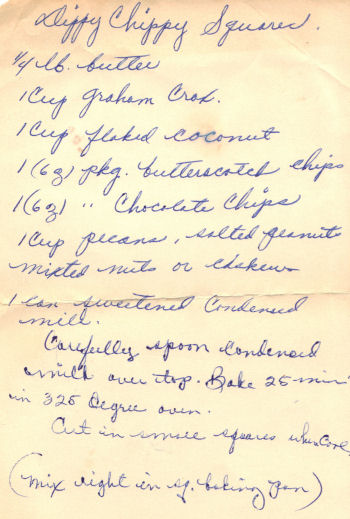 Dippy Chippy Squares.
1/4 lb. butter
1 Cup graham Crax.
1 Cup flaked coconut
1 (6 oz) pkg. butterscotch chips
1 (6 oz) " Chocolate Chips
1 Cup pecans, salted peanuts
mixted nuts or cashews
1 can sweetened Condensed
milk.
Carefully spoon Condensed
milk over top. Bake 25 min
in 325 degree oven.
Cut in small squares when cool
(mix right in sq. baking pan)